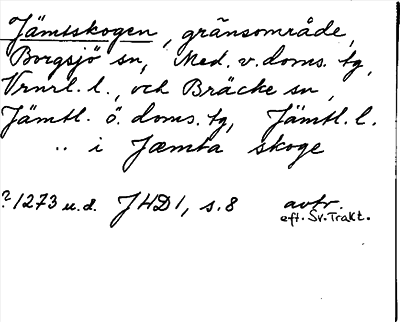 Jämtskogen, gränsområde,
Borgsjö sn, Med. v. doms. tg,
Vrnrl. l., och Bräcke sn,
Jämtl. ö. doms. tg, Jämtl. l.
.. i Jæmta skoge
? 1273 u.d. JHD 1, s. 8 avtr.
eft. Sv. Trakt.